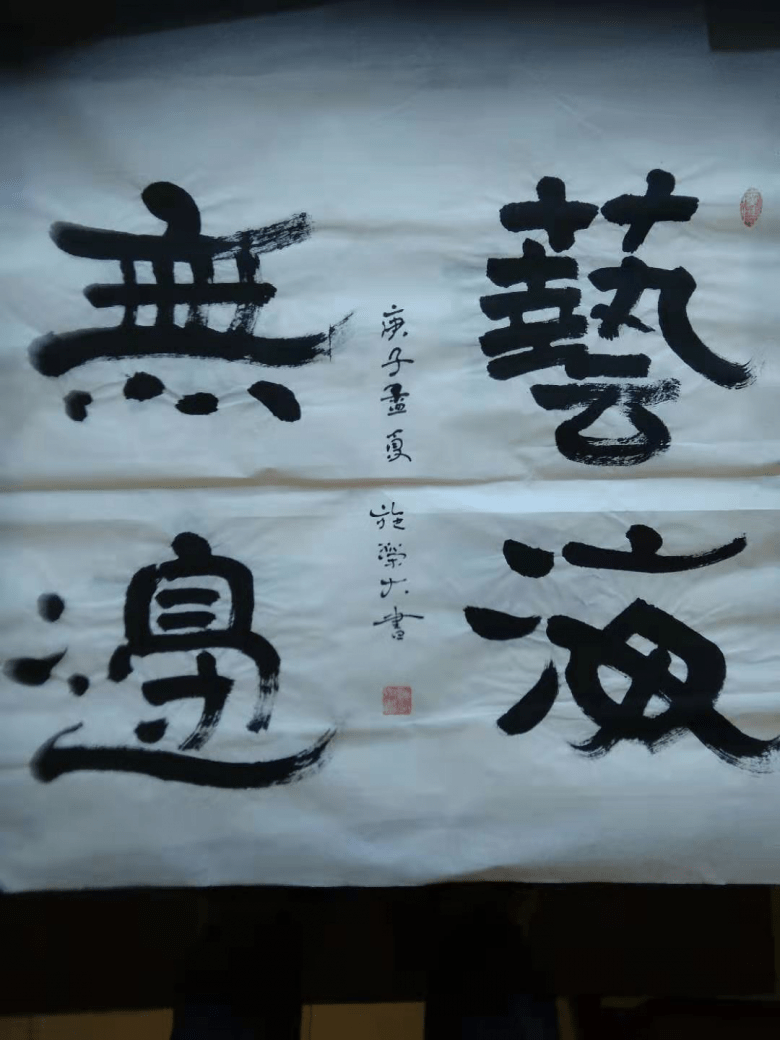 藝海
無邊
庚子夏
施書